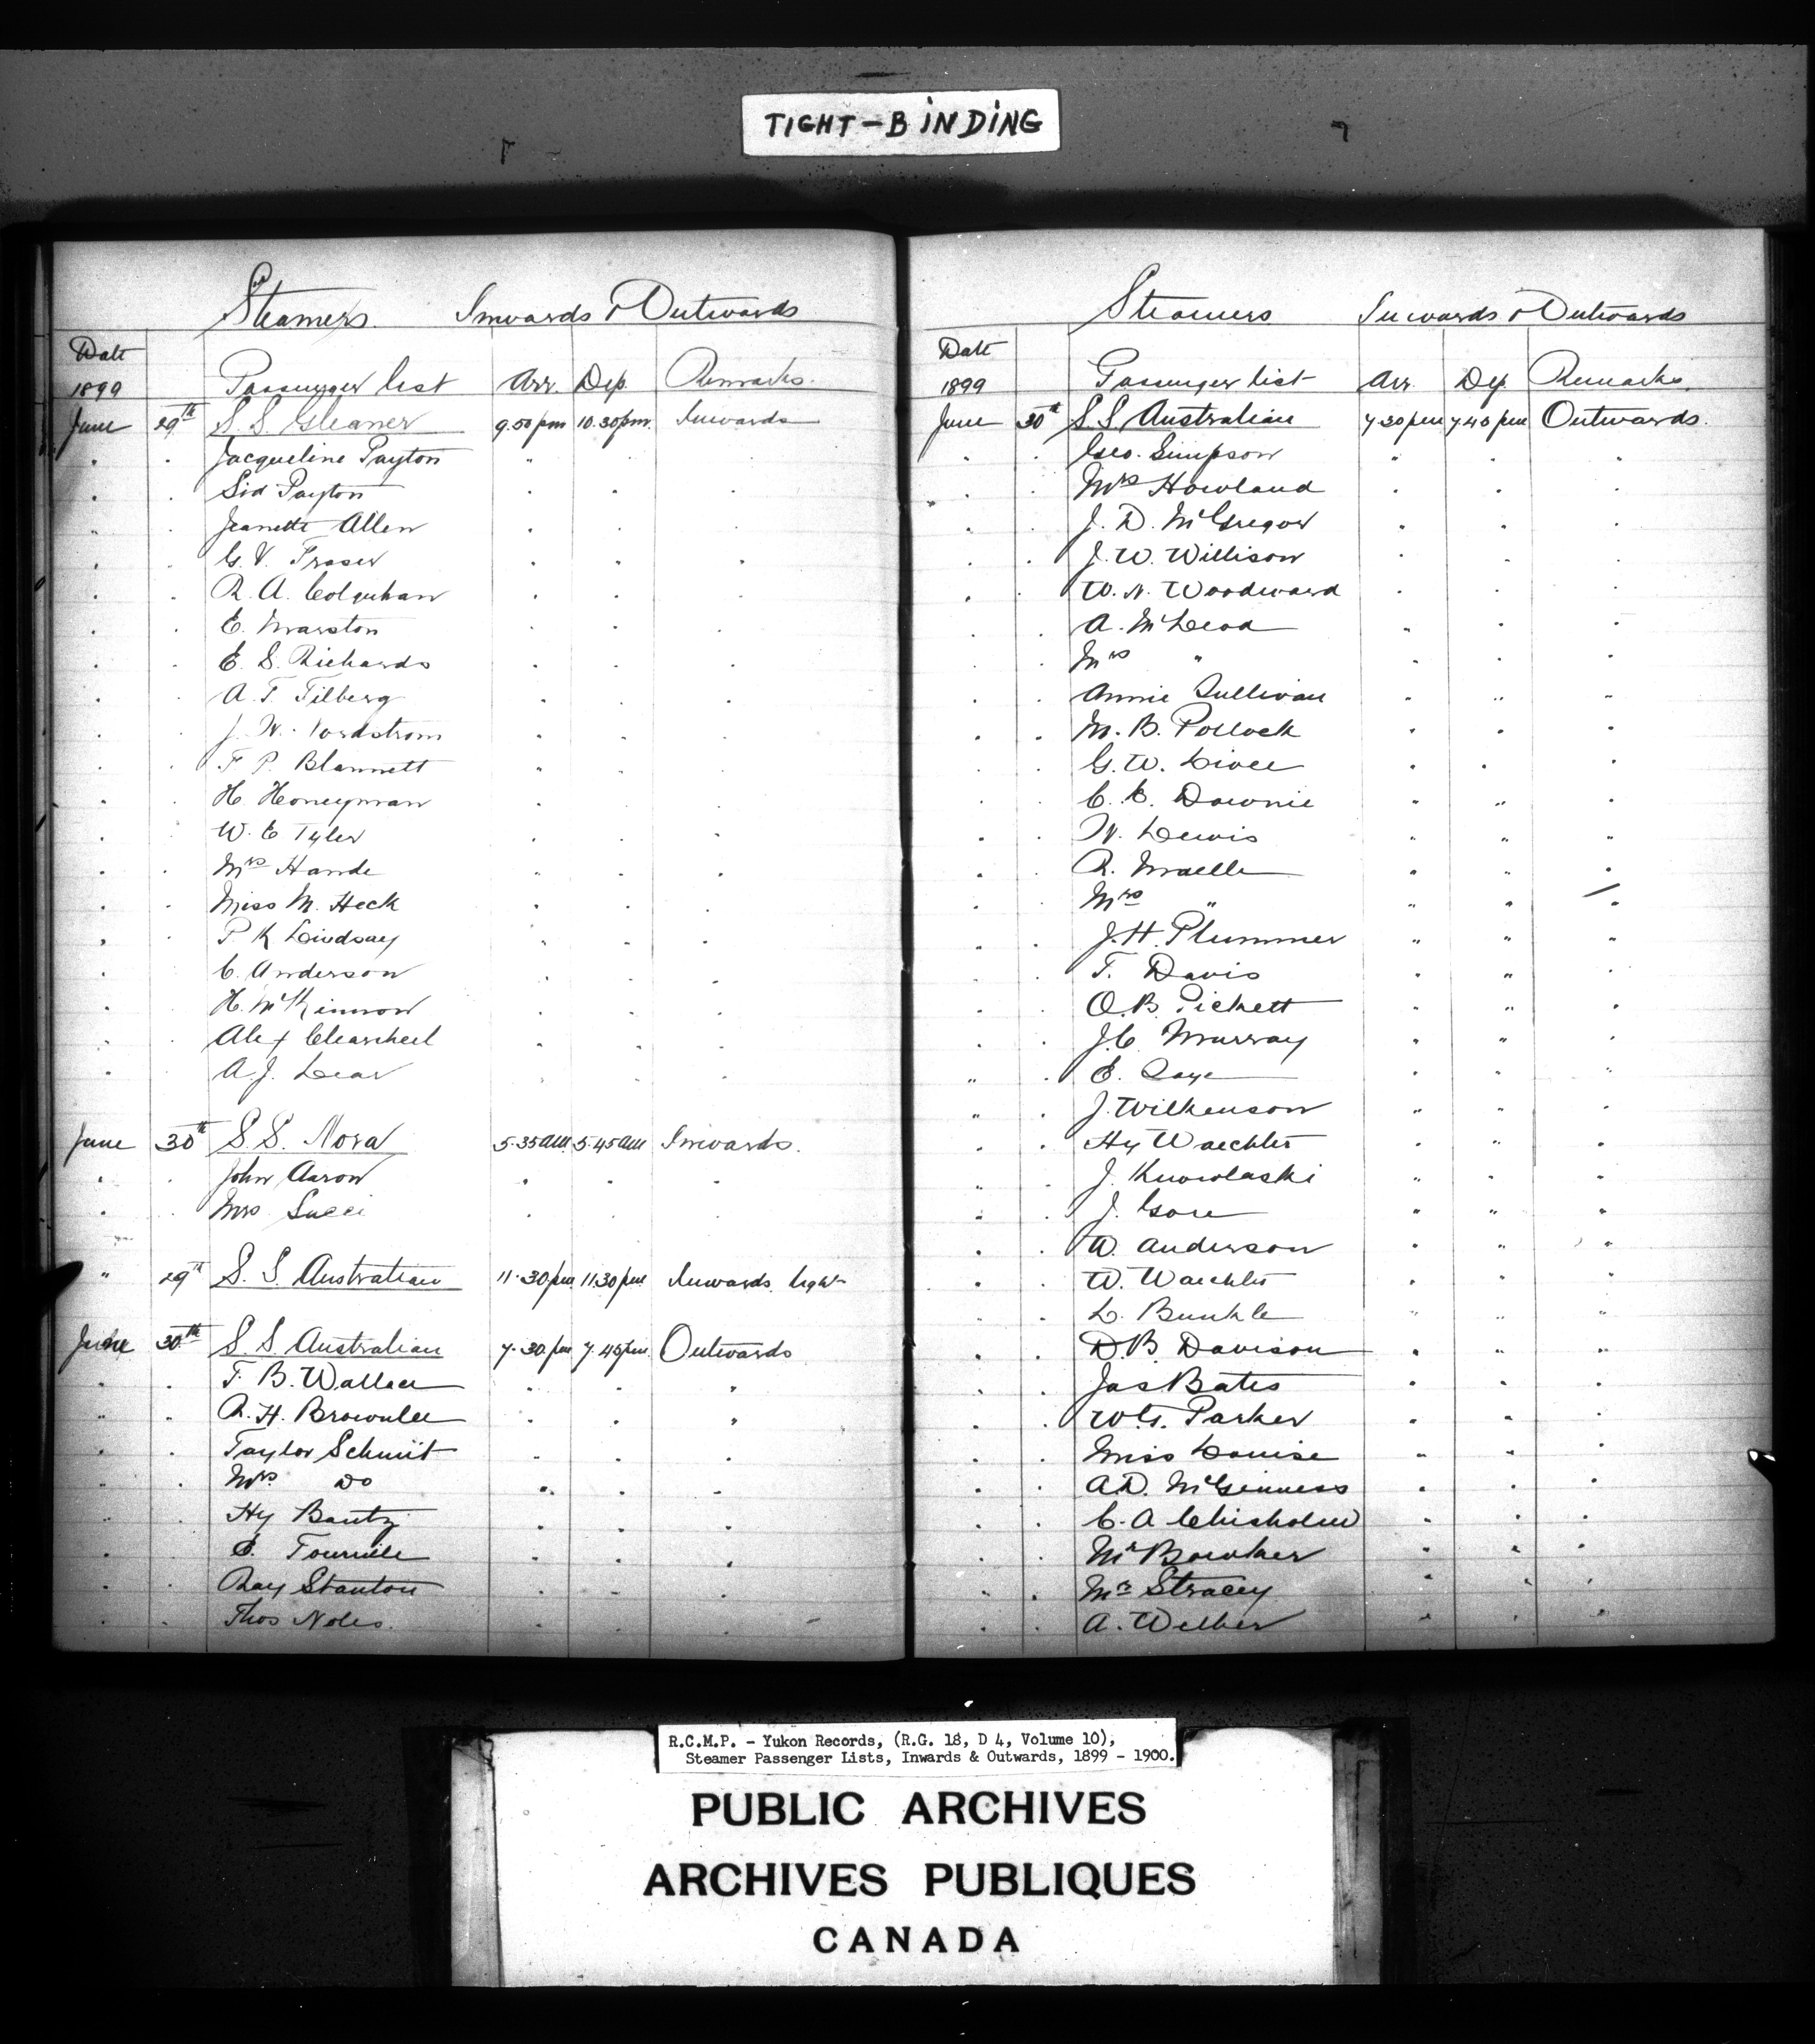 TIGHT-BINDING
Steamers. Inwards & Outwards
Date
1899 Passenger list Arr. Dep. Remarks.
June 29th S. S. Gleaner 9.50 pm 10.30 pm. Inwards
Jacqueline Payton
Sid Payton
Jeanette Allen
G. V. Fraser
R. A. Colquhan
E. Marston
E. S. Richards
A. T. Tilberg
J. N. Nordstrom
F. P. Blannett
H. Honeyman
W. E. Tyler
Mrs Hande
Miss M. Heck
P K Lindsay
C. Anderson
H. McKinnon
Alex
A. J. Lear
June 30th S. S. Nora 5.35 am 5.45 am Inwards.
John Aaron
Mrs Succi
" 29th S. S. Australian 11.30 pm 11.30 pm Inwards. light
June 30th S. S. Australian 7.30 pm 7.45 pm. Outwards
F. B. Wallace
R. H. Brownlee
Taylor Schmit
Mrs Do
Hy Bantz
E. Tourville
Ray Stanton
Thos Noles.
Steamers Inwards & Outwards
Date
1899 Passenger list Arr. Dep. Remarks.
June 30th S S Australian 7.30 pm 7.40 pm Outwards.
Geo. Simpson
Mrs Howland
J. D. McGregor
J. W. Willison
W. N. Woodward
A. McLeod
Mrs "
Annie Sullivan
M. B. Pollock
G. W.
C. E. Downie
N. Lewis
R. Maelle
Mrs "
J. H. Plummer
T. Davis
O. B. Pickett
J. C. Murray
E.
J. Wilkenson
Hy Waechter
J.
J. Gore
W. Anderson
W. Waechter
L. Bunkle
D. B. Davison
Jas Bates
W. G. Parker
Miss Louise
A. D. McGinness
C. A Chisholm
Mr Bowker
Mr Stracey
A. Welker
R.C.M.P. - Yukon Records, (R.G. 18, D 4, Volume 10),
Steamer Passenger Lists, Inwards & Outwards, 1899 - 1900.
PUBLIC ARCHIVES
ARCHIVES PUBLIQUES
CANADA